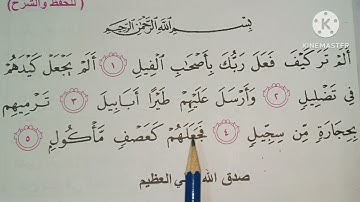 (للحفظ والشرح)
KINEMASTER
بِسْمِ اللَّهِ الرَّحْمَٰنِ الرَّحِيمِ
أَلَمْ تَرَ كَيْفَ فَعَلَ رَبُّكَ بِأَصْحَٰبِ الْفِيلِ ١ أَلَمْ يَجْعَلْ كَيْدَهُمْ
فِي تَضْلِيلٍ ٢ وَأَرْسَلَ عَلَيْهِمْ طَيْرًا أَبَابِيلَ ٣ تَرْمِيهِم
بِحِجَارَةٍ مِّن سِجِّيلٍ ٤ فَجَعَلَهُمْ كَعَصْفٍ مَّأْكُولٍ ٥
صدق الله العظيم